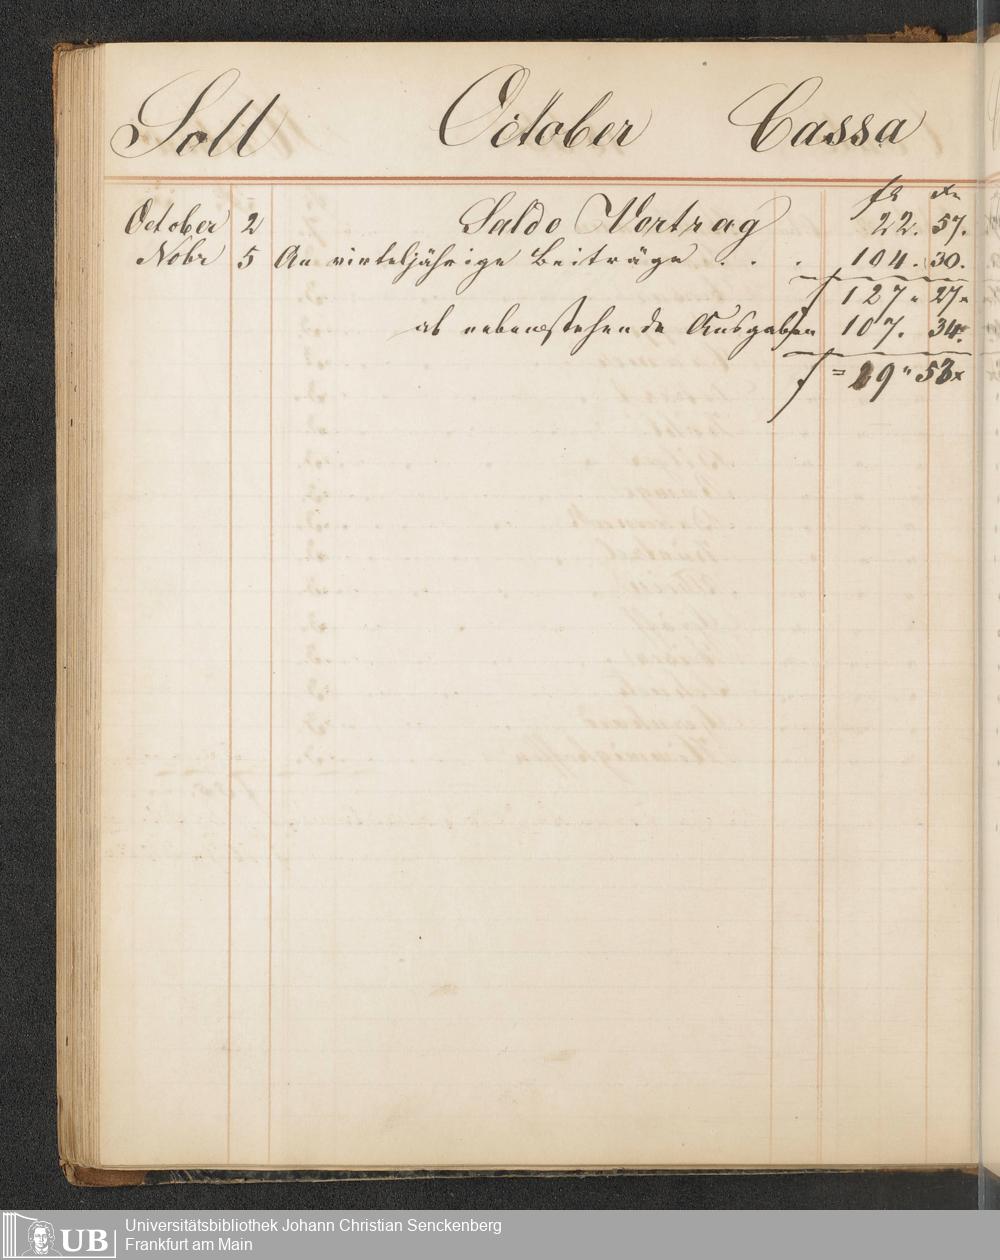 Soll October Cassa
fl xr
October 2 Saldo Vortrag 22. 57.
Nobr 5 An vierteljährige Beiträge . . . 104. 30.
f 127 " 27 x
ab nebenstehende Ausgaben 107. 34.
f = 19 " 53 x
Universitätsbibliothek Johann Christian Senckenberg
Frankfurt am Main
UB